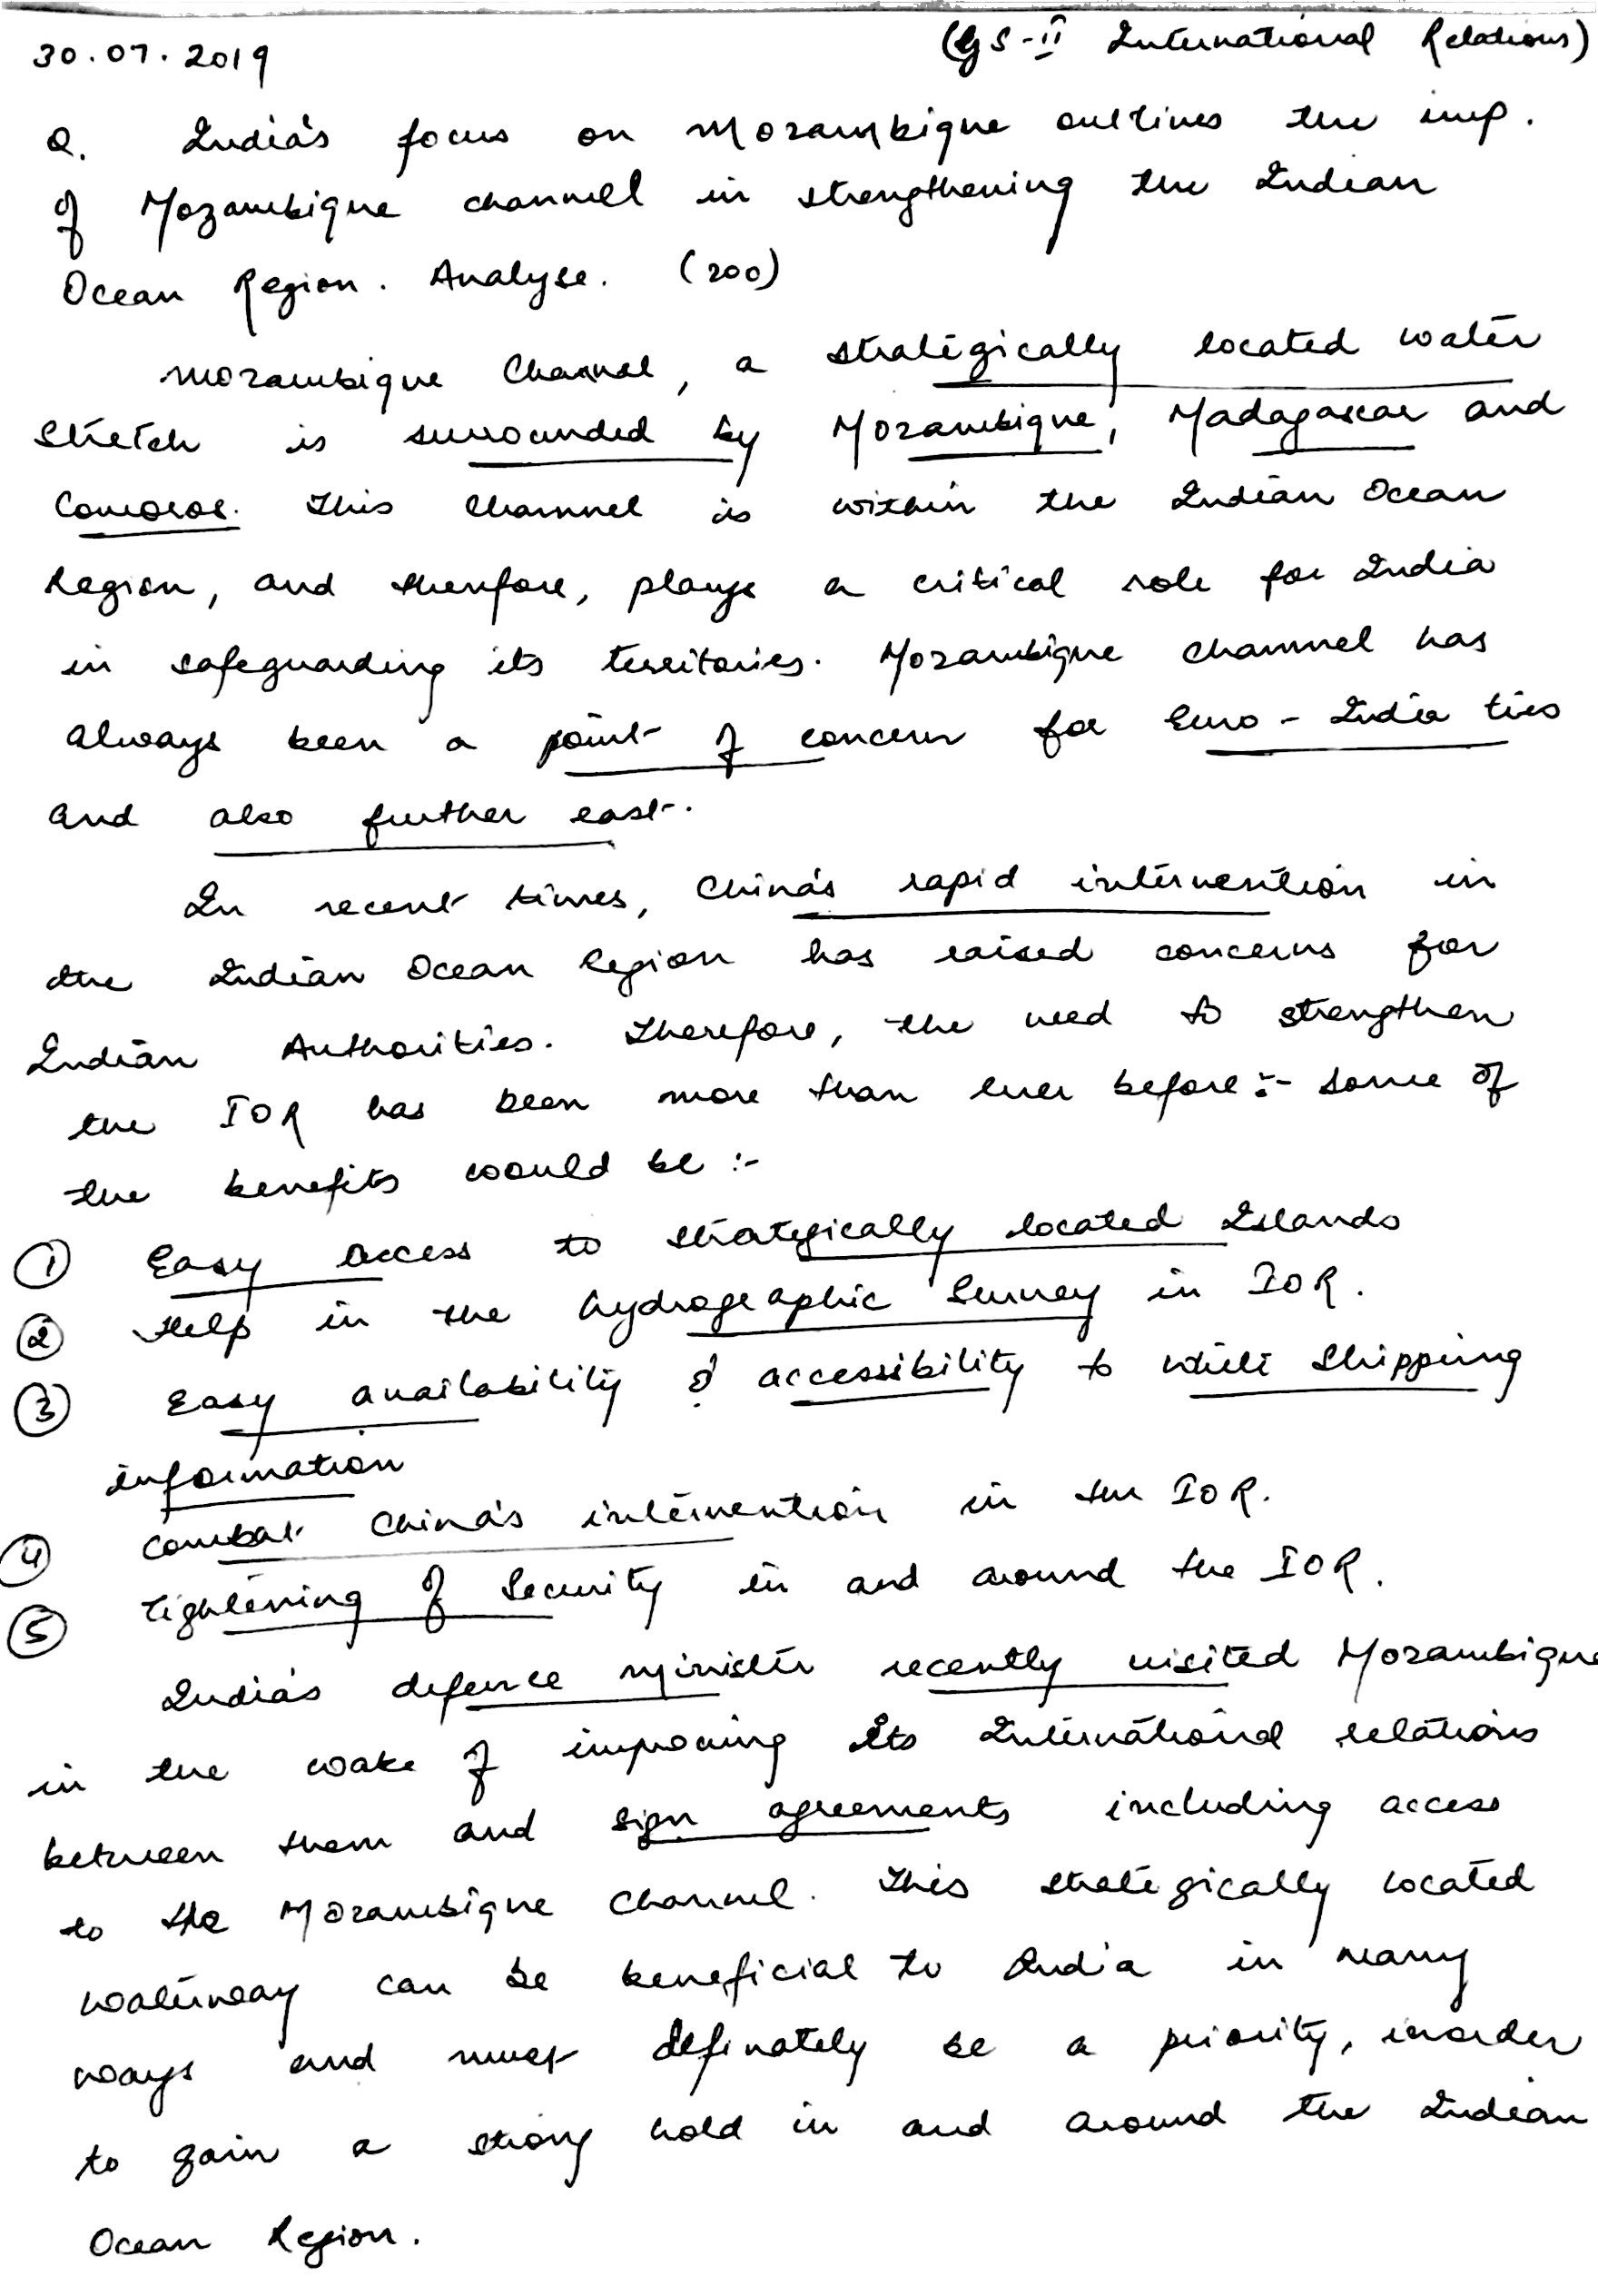 30.07.2019
(GS-II International Relations)
Q. India's focus on Mozambique outlines the imp.
of Mozambique channel in strengthening the Indian
Ocean Region. Analyse. (200)
Mozambique Channel, a strategically located water
stretch is surrounded by Mozambique, Madagascar and
Comoros. This channel is within the Indian Ocean
Region, and therefore, plays a critical role for India
in safeguarding its territories. Mozambique channel has
always been a point of concern for Euro - India ties
and also further east.
In recent times, China's rapid intervention in
the Indian Ocean Region has raised concerns for
Indian Authorities. Therefore, the need to strengthen
the IOR has been more than ever before :- Some of
the benefits would be :-
① Easy access to strategically located Islands
② Help in the hydrographic Survey in IOR.
③ Easy availability & accessibility to white Shipping
information
④ Combat China's intervention in the IOR.
⑤ Tightening of Security in and around the IOR.
India's defence minister recently visited Mozambique
in the wake of improving its International relations
between them and sign agreements including access
to the Mozambique Channel. This strategically located
waterway can be beneficial to India in many
ways and must definately be a priority, inorder
to gain a strong hold in and around the Indian
Ocean Region.